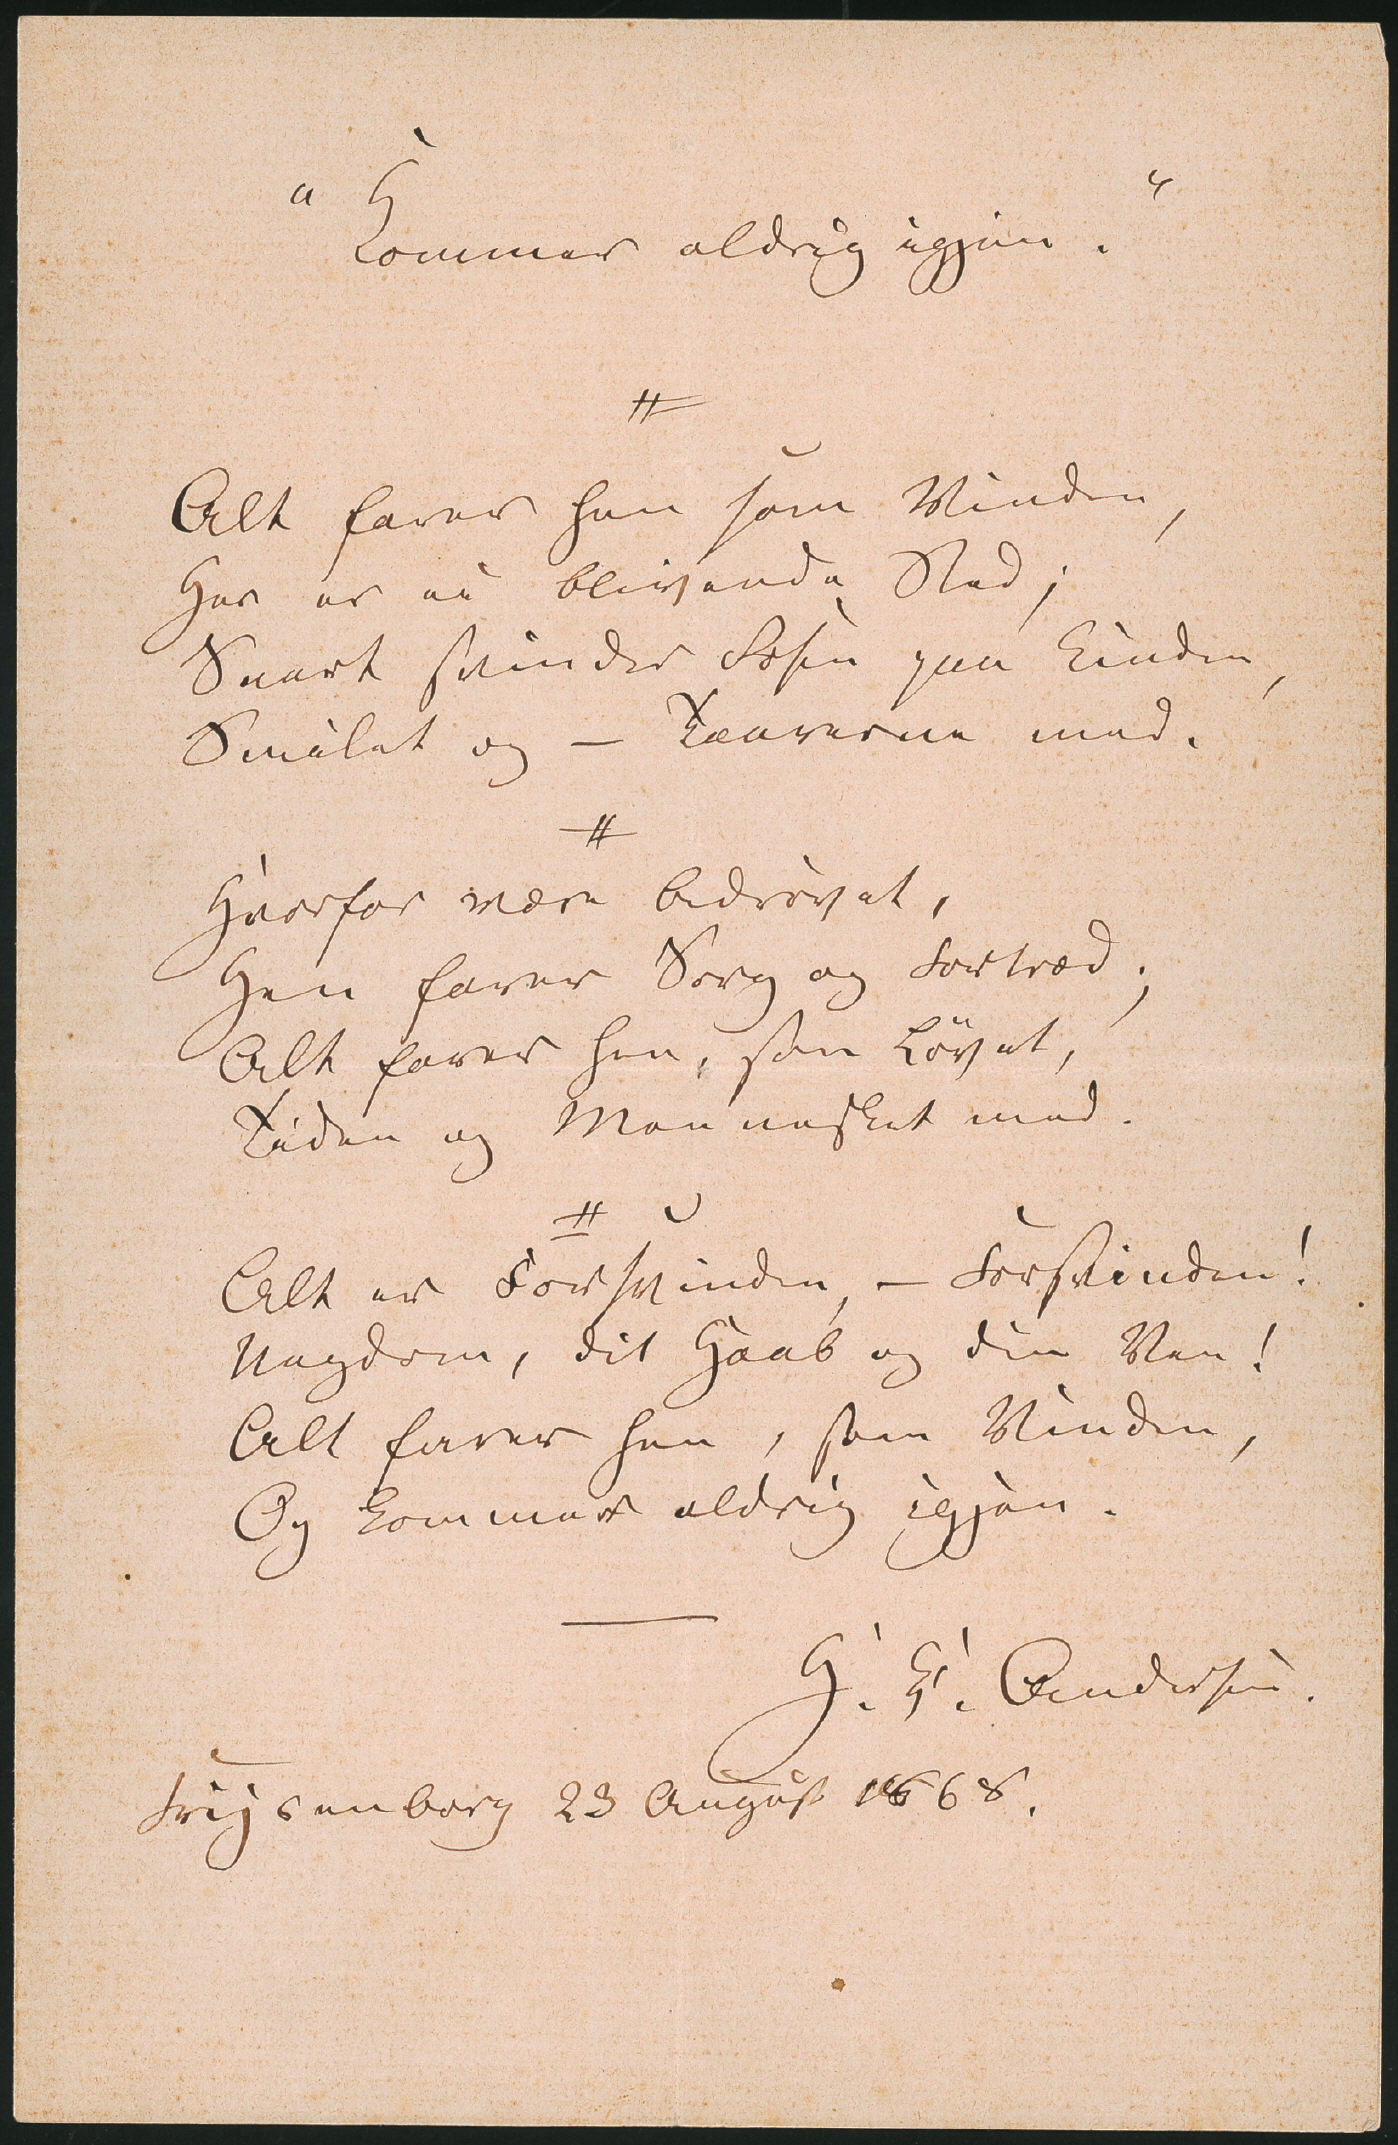 "Kommer aldrig igjen."
Alt farer hen som Vinden,
Her er ei blivende Sted;
Snart svinder Rosen paa Kinden,
Smilet og — Taarerne med.
Hvorfor være bedrøvet,
Hen farer Sorg og Fortræd;
Alt farer hen, som Løvet,
Tiden og Mennesket med.
Alt er Forsvinden, — Forsvinden!
Ungdom, dit Haab og din Ven!
Alt farer hen, som Vinden,
Og kommer aldrig igjen.
H. C. Andersen.
Frijsenborg 23 August 1868.